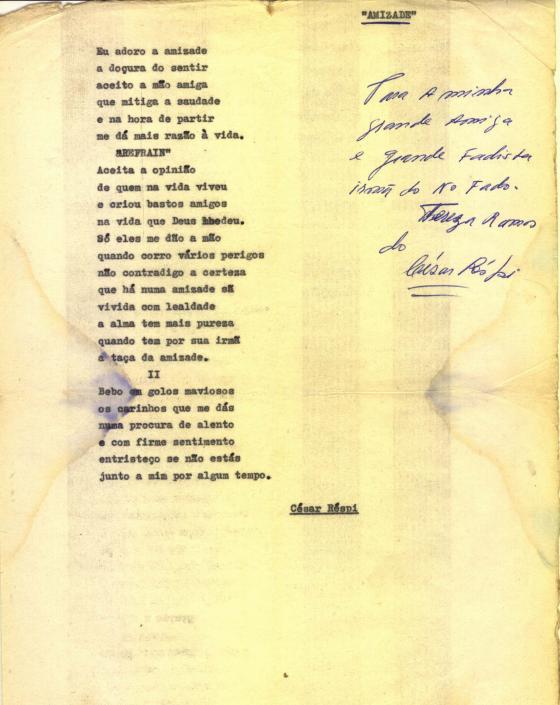 "AMIZADE"
Eu adoro a amizade
a doçura do sentir
aceito a mão amiga
que mitiga a saudade
e na hora de partir
me dá mais razão à vida.
"REFRAIN"
Aceita a opinião
de quem na vida viveu
e criou bastos amigos
na vida que Deus lhedeu.
Só eles me dão a mão
quando corro vários perigos
não contradigo a certeza
que há numa amizade sã
vivida com lealdade
a alma tem mais pureza
quando tem por sua irmã
a taça da amizade.
II
Bebo em golos maviosos
os carinhos que me dás
numa procura de alento
e com firme sentimento
entristeço se não estás
junto a mim por algum tempo.
César Réspi
Para a minha
grande Amiga
e grande Fadista
irmã do No Fado.
Tereza Ramos
do
César Réspi